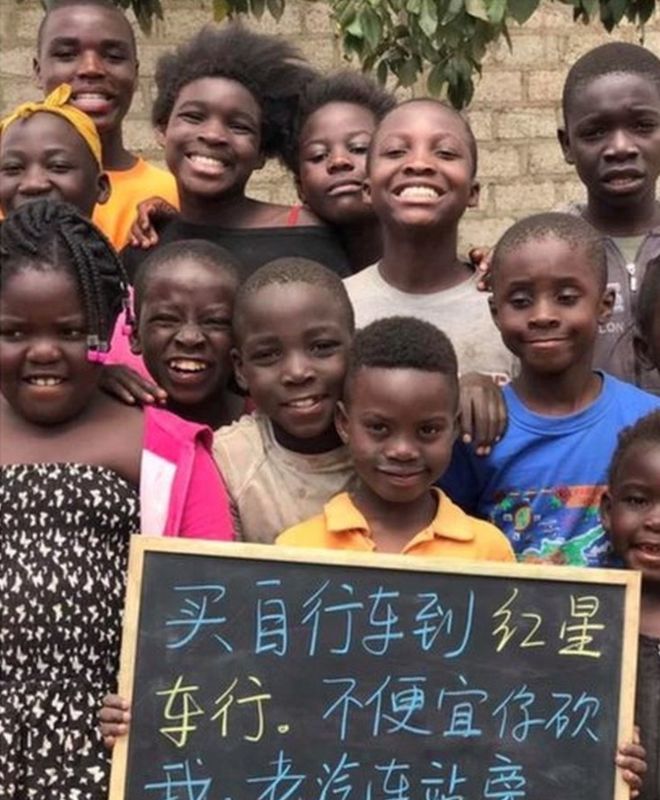 买自行车到红星
车行。不便宜你砍
我。老汽车站旁